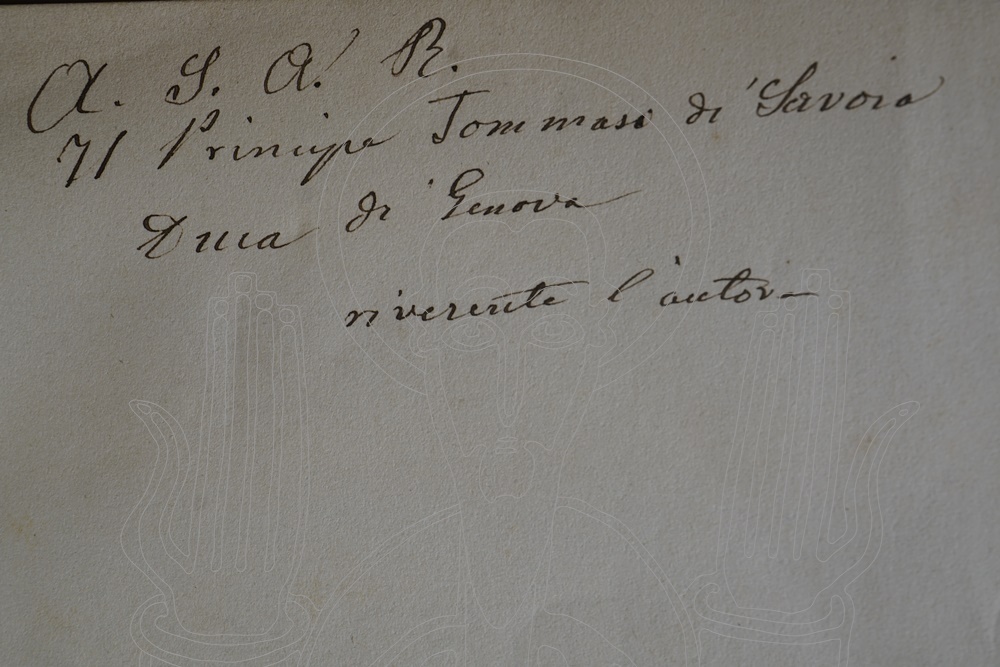 A. S. A. R.
Il Principe Tommaso di Savoia
Duca di Genova
riverente l'autore